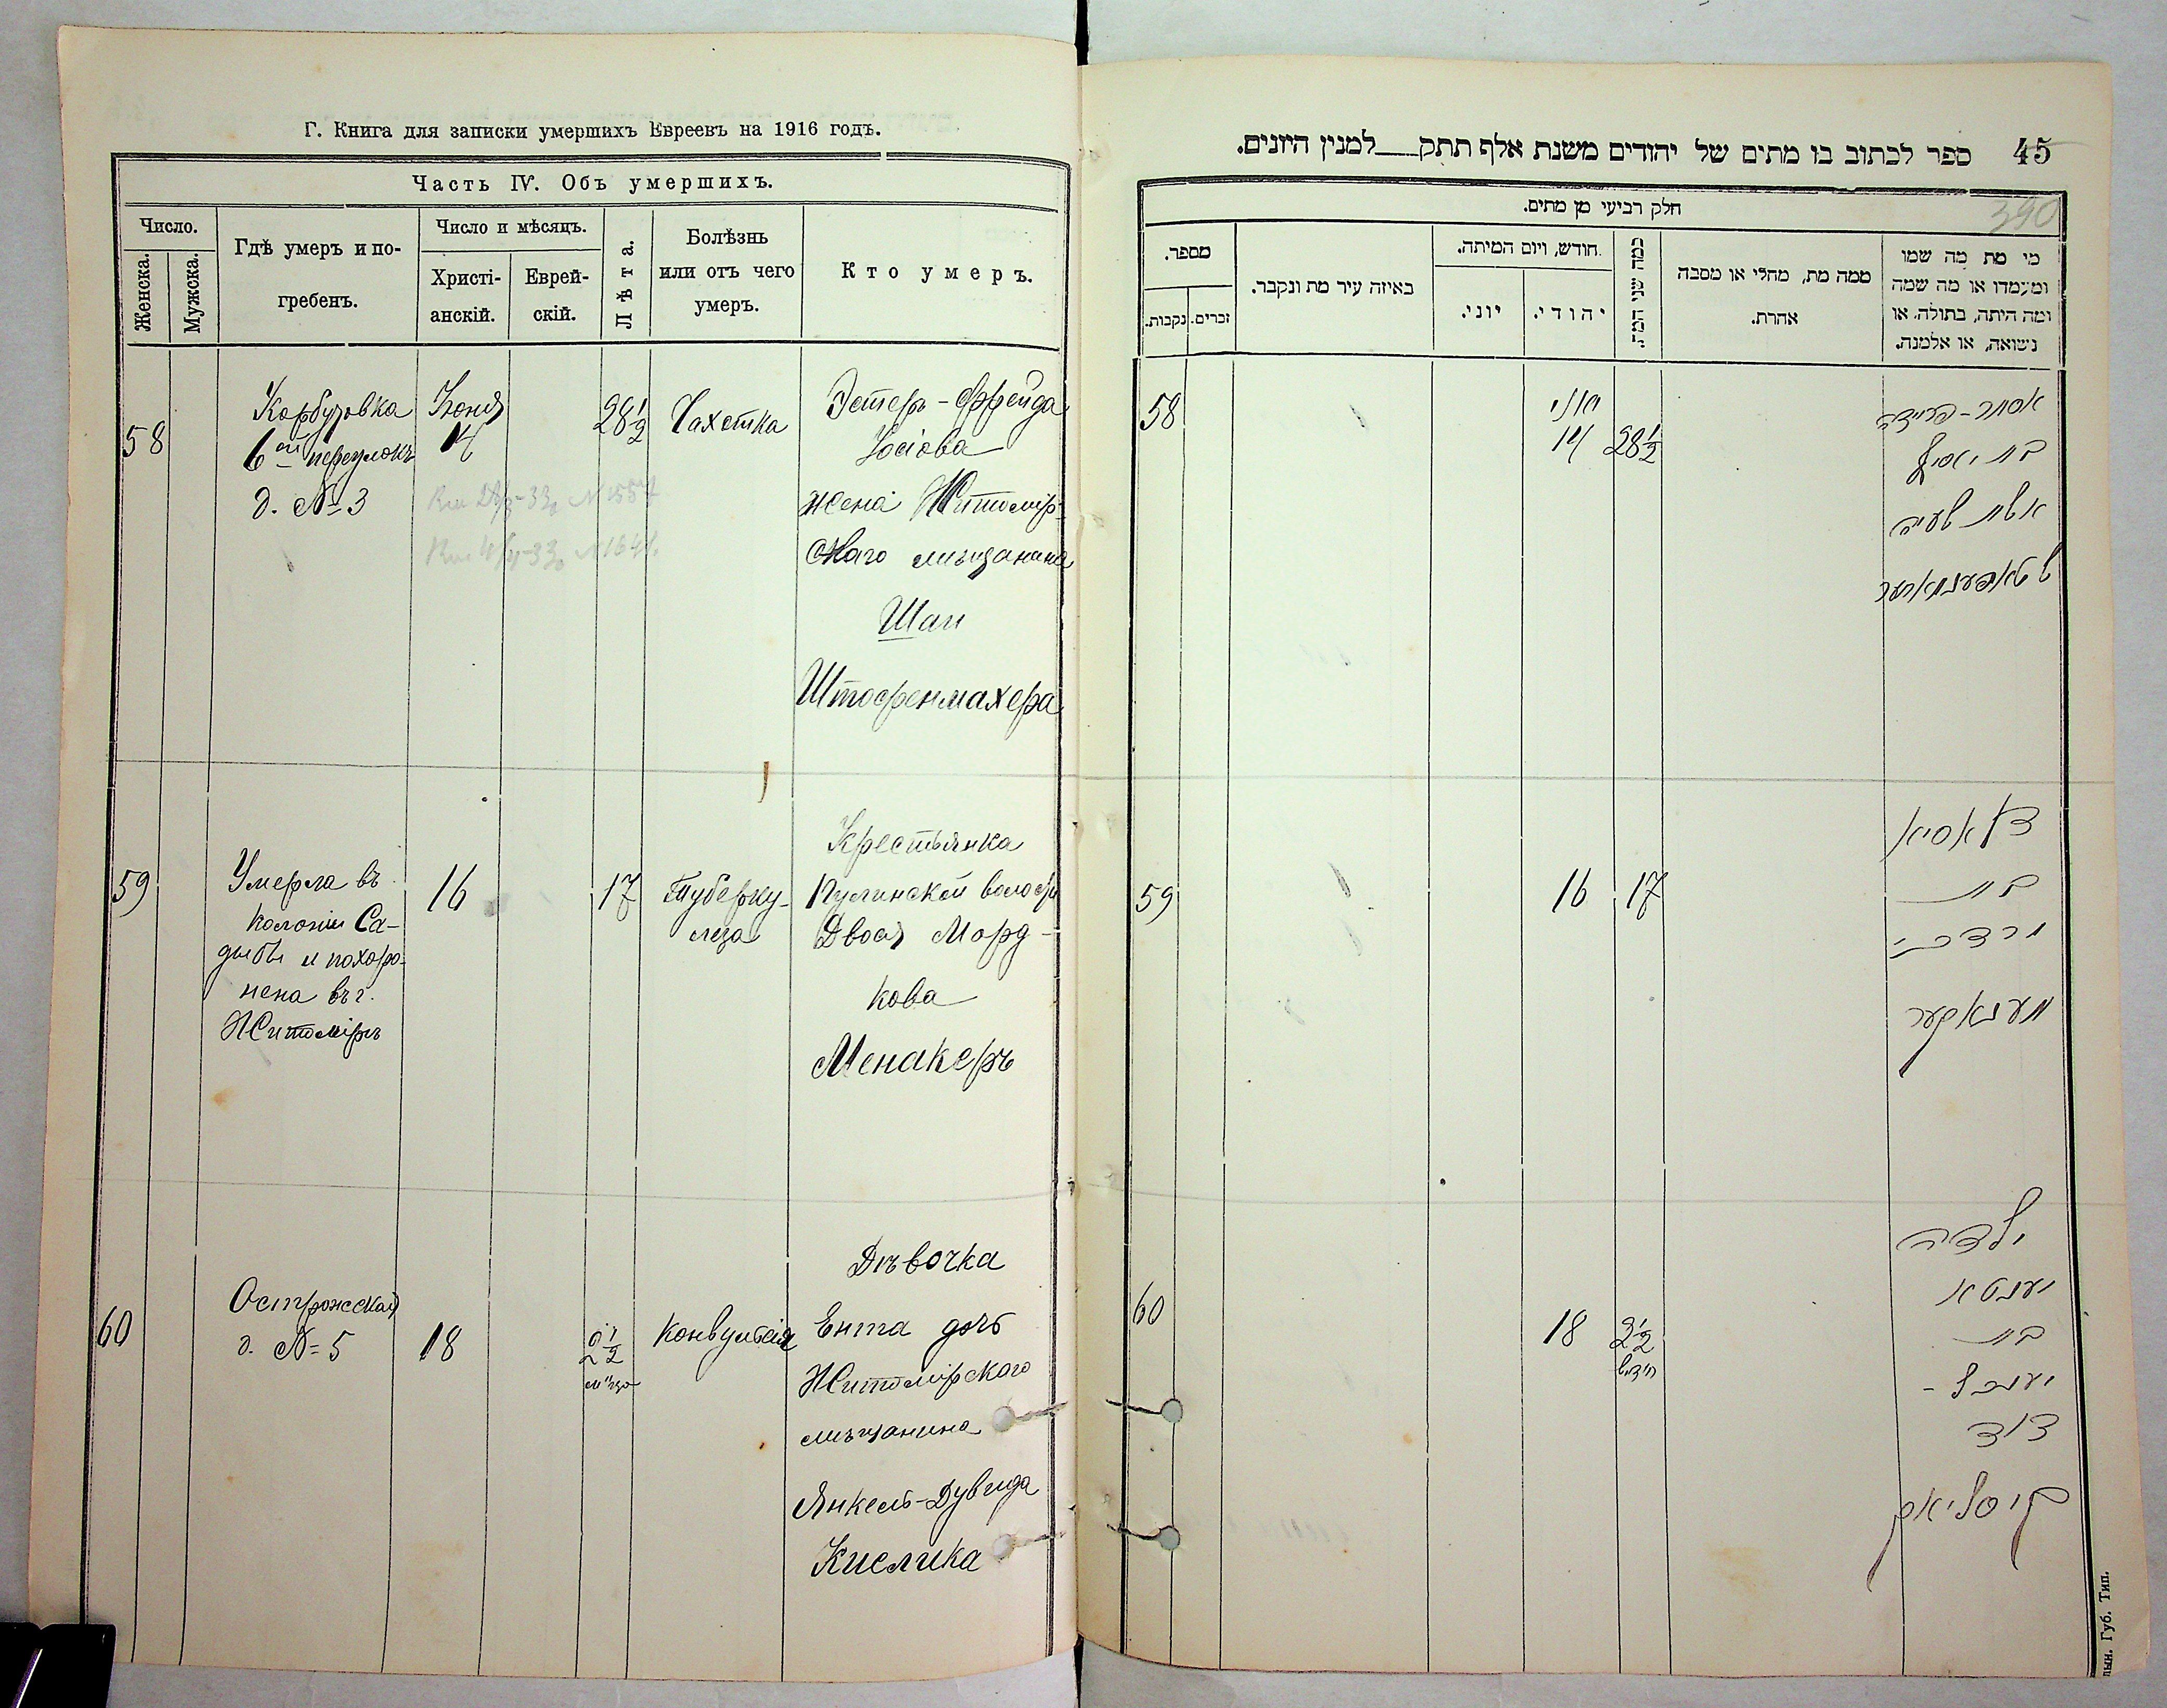 Г. Книга для записки умершихъ Евреевъ на 1916 годъ.
Часть IV. Объ умершихъ.
Число.
Женска.
Мужска.
Гдѣ умеръ и по-
гребенъ.
Число и мѣсяцъ.
Христі-
анскій.
Еврей-
скій.
Лѣта.
Болѣзнь
или отъ чего
умеръ.
Кто умеръ.
58
Корбутовка
6ой переулокъ
д. № 3
Іюня
14
28 1/2
Чахотка
Эстеръ-Фрейда
Іосіова
жена Житомір-
скаго мѣщанина
Шаи
Штофенмахера
59
Умерла въ
колоніи Са-
дыбы и похоро-
нена въ г.
Житоміръ
16
17
Туберку-
леза
Крестьянка
Пулинской волости
Двося Морд-
кова
Менакеръ
60
Острожская
д. № 5
18
2 1/2
м-ца
конвульсія
Дѣвочка
Ента дочь
Житомірскаго
мѣщанина
Янкель-Дувида
Кислика
45
ספר לכתוב בו מתים של יהודים משנת אלף תתק___למנין היונים.
390
חלק רביעי מן מתים.
מספר.
נקבות.
זכרים.
באיזה עיר מת ונקבר.
חודש, ויום המיתה.
יוני.
יהודי.
כמה שני המת.
ממה מת, מחלי או מסבה
אחרת.
מי מת מה שמו
ומעמדו או מה שמה
ומה היתה, בתולה, או
נשואה, או אלמנה.
58
יוני
14
28 1/2
אסתר-פריידה
בת יאסיף
אשת שעיה
59
16
17
בת
מרדכי
מענאקער
60
18
2 1/2
חדש
ילדה
יענטא
בת
יענקל-
דוד
קיסליאק
Губ. Тип.